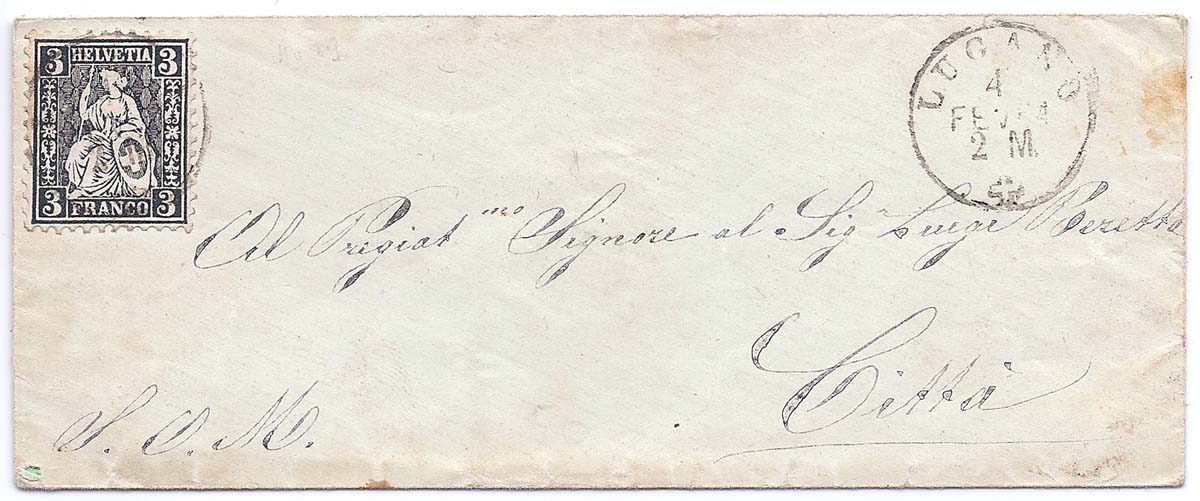 3 HELVETIA 3
3 FRANCO 3
LUGANO
4
FEVR
2 M.
Al Pregiat.mo Signore al Sigr Luigi Beretta
Città
S. O. M.